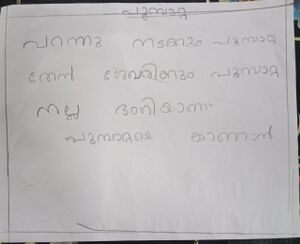 പൂമ്പാറ്റ
പറന്നു നടക്കും പൂമ്പാറ്റ
തേൻ ശേഖരിക്കും പൂമ്പാറ്റ
നല്ല ഭംഗിയാണ്
പൂമ്പാറ്റയെ കാണാൻ